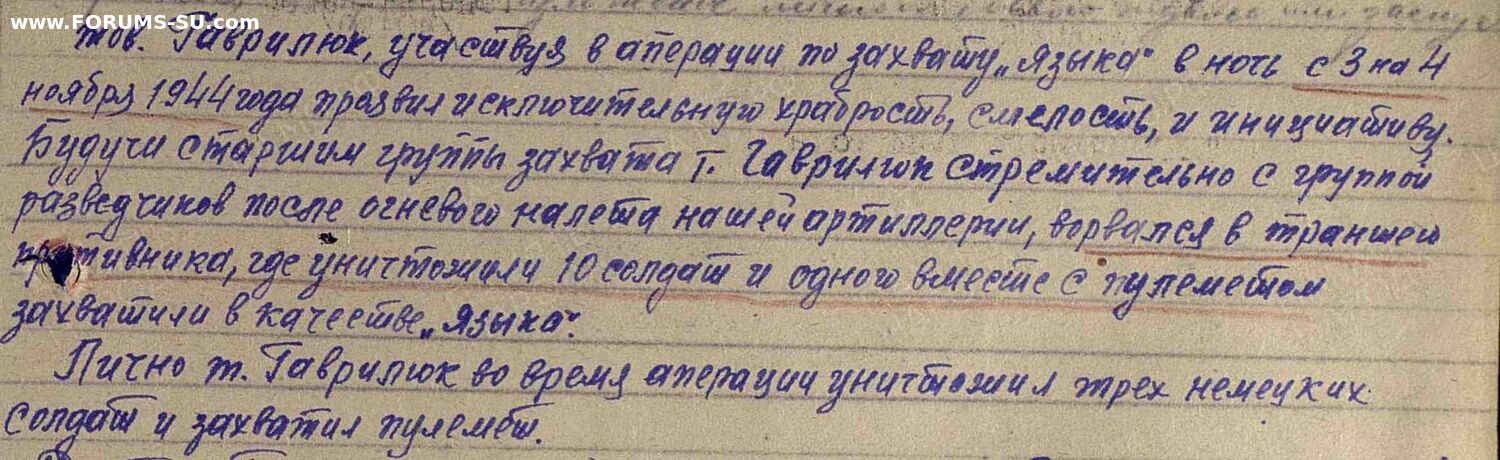 www.FORUMS-SU.com
тов. Гаврилюк, участвуя в аперации по захвату „языка" в ночь с 3 на 4
ноября 1944 года проявил исключительную храбрость, смелость, и инициативу.
Будучи старшим группы захвата т. Гаврилюк стремительно с группой
разведчиков после огневого налета нашей артиллерии, ворвался в траншею
противника, где уничтожили 10 солдат и одного вместе с пулеметом
захватили в качестве „языка".
Лично т. Гаврилюк во время аперации уничтожил трех немецких
солдат и захватил пулемет.